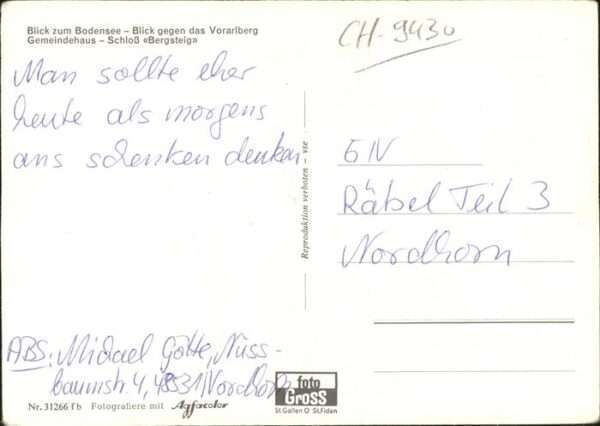 Blick zum Bodensee – Blick gegen das Vorarlberg
Gemeindehaus – Schloß «Bergsteig»
CH-9430
Man sollte eher
heute als morgens
ans schenken denken.
Reproduktion verboten – vse
GN
Räbel Teil 3
Nordhorn
ABS: Michael Götte, Nuss-
baumstr. 4, 48531 Nordhorn
foto
GROSS
St.Gallen O St.Fiden
Nr. 31266 fb Fotografiere mit Agfacolor